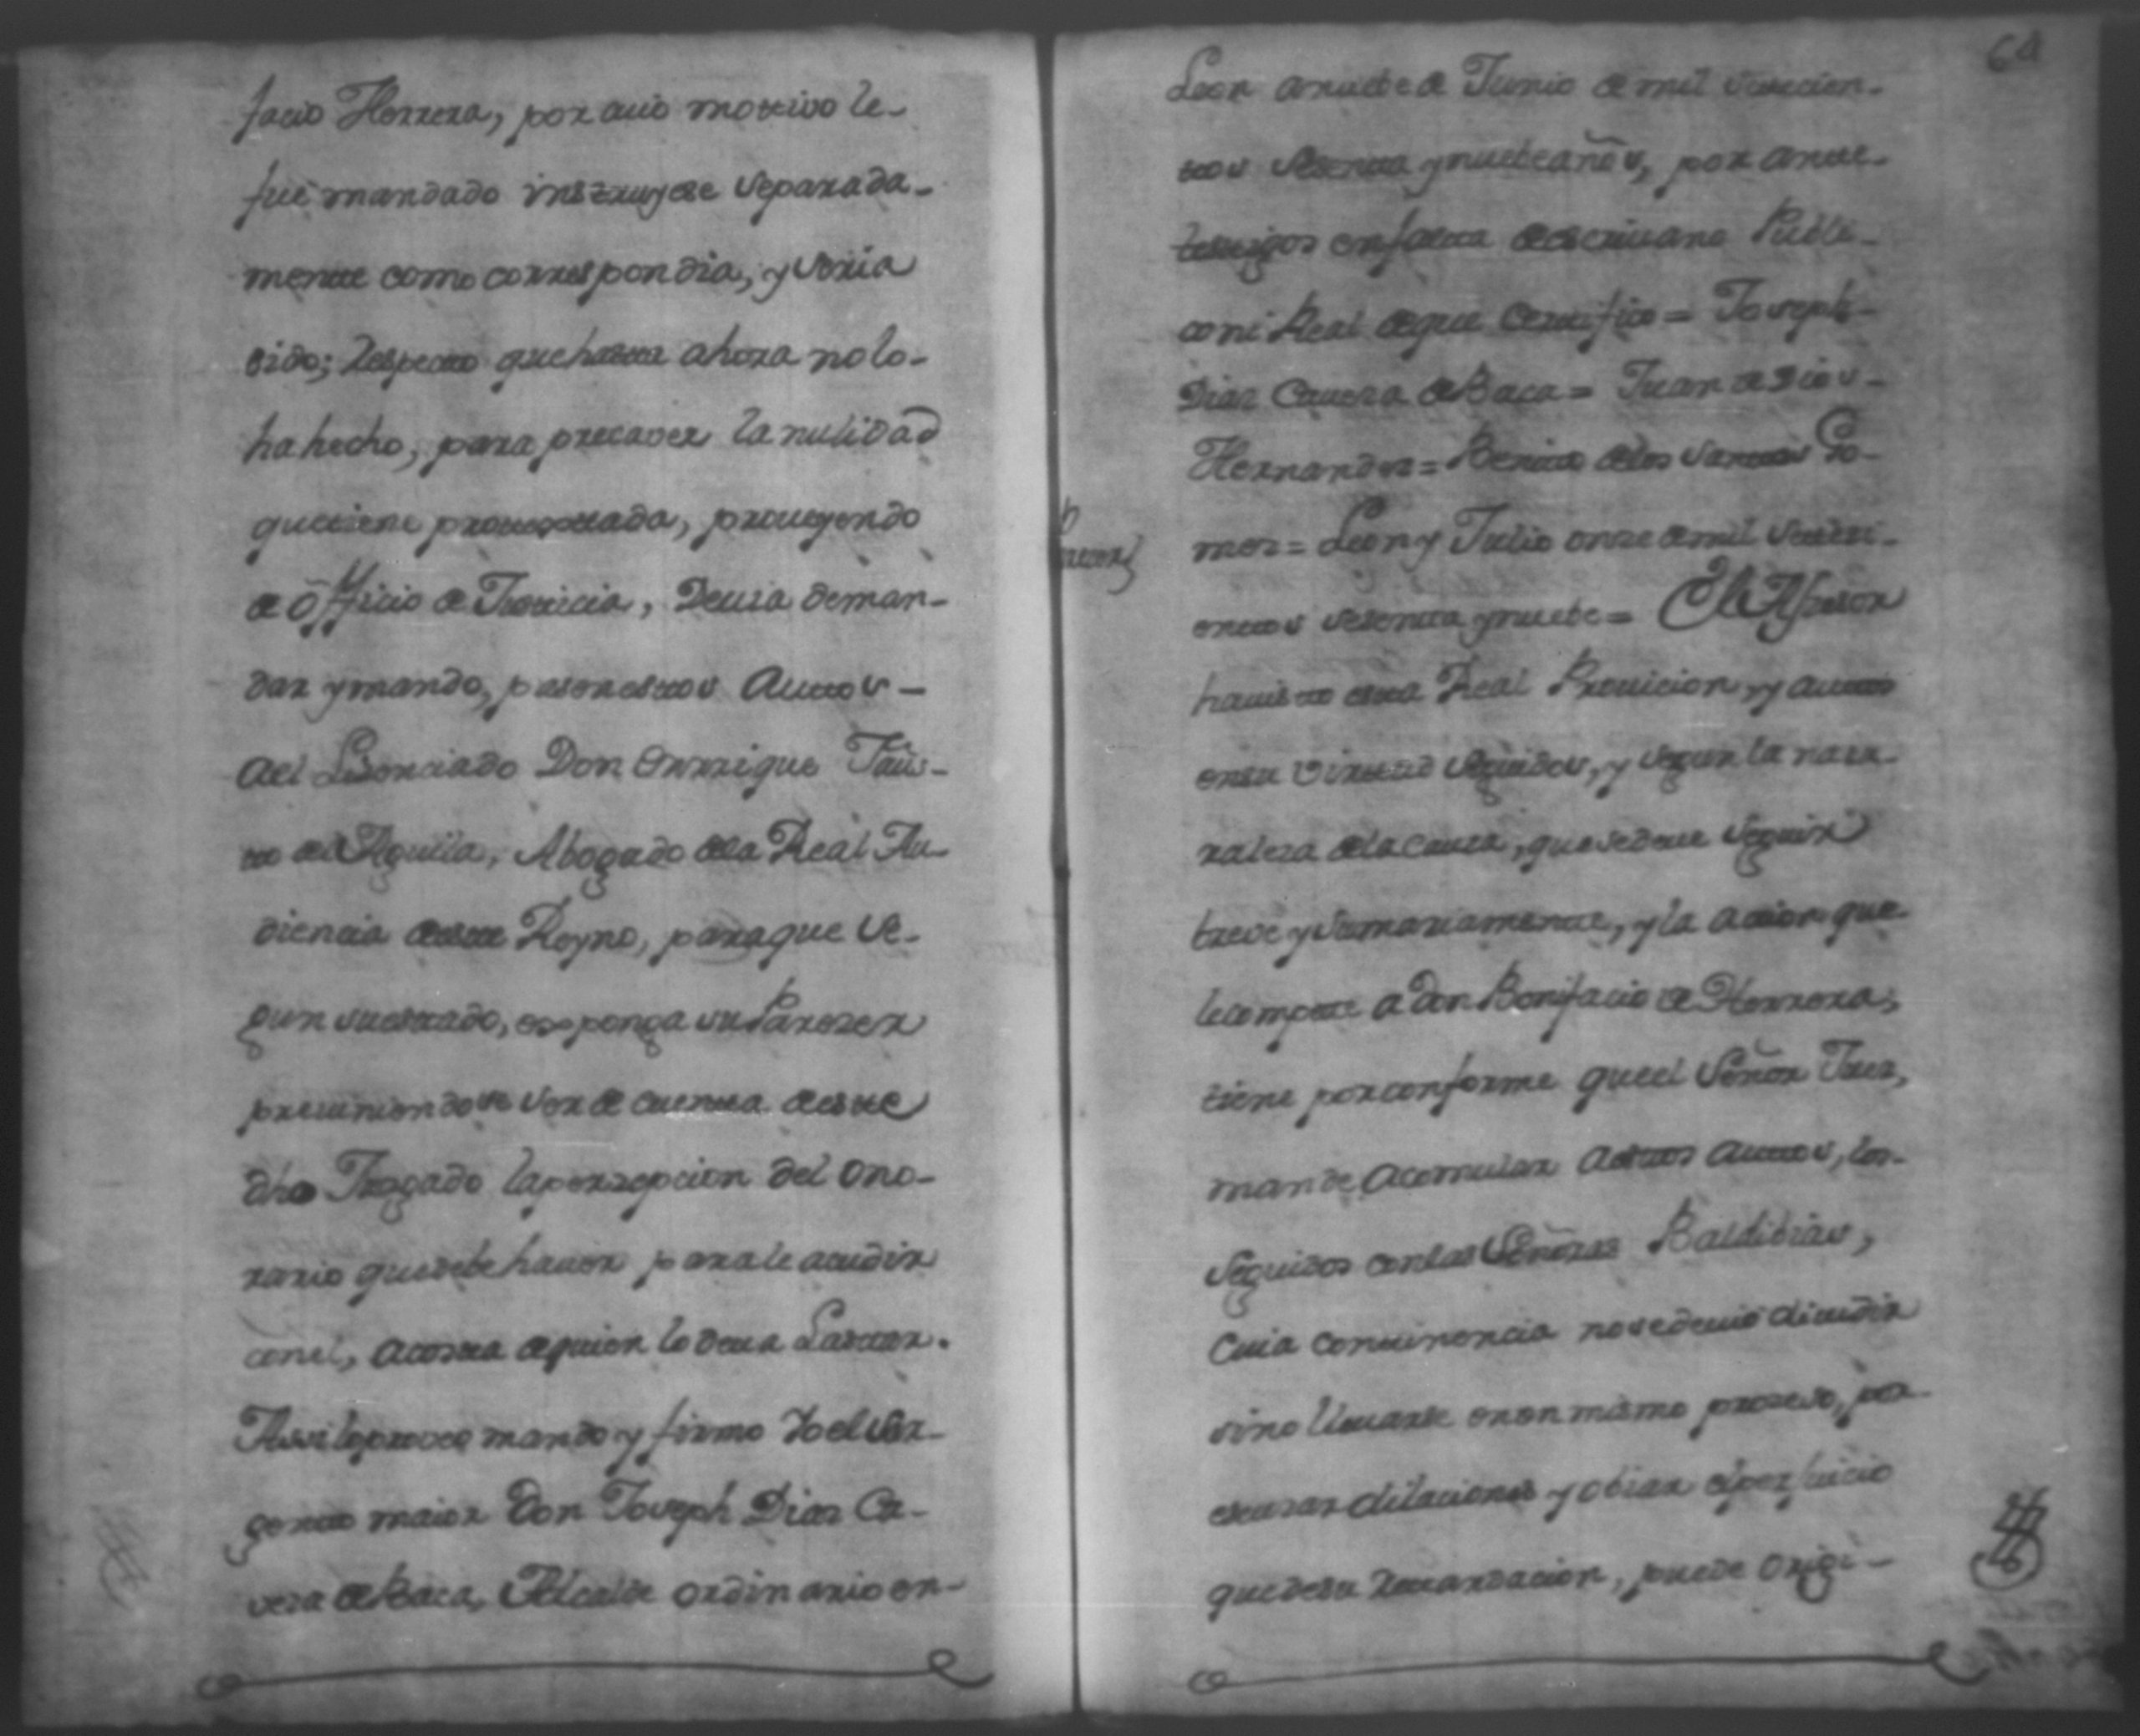 facio Herrera, por cuio mottivo le-
fue mandado instruyese separada-
mente como correspondia, y seria
sido; Respecto que hasta ahora no lo-
ha hecho, para precaver la nulidad
que tiene prottexttada, proveyendo
de Officio de Justicia, Devia deman-
dar y mando, pasen estos Auttos-
Ael Lisenciado Don Enrrique
del Aguila, Abogado dela Real Au-
diencia deste Reyno, para que se-
gun su estado, esponga su Parezer
previniendose ser de cuenta deste
dho Jusgado la persepcion del ono-
rario que debe haver para le acudir
con el, acosta de quien lo deva Lastar.
Assi lo proveo mando y firmo Yo el Sar-
gento maior Don Joseph Dias Ca-
vesa de Baca, Alcalde ordinario en-
64
Leon anuebe de Junio de mil setecien-
tos sesenta y nuebe años, por ante-
testigos en falta de escrivano Publi-
co ni Real de que Certifico = Joseph-
Dias Cavesa de Baca = Juan de Dios-
Hernandez = Benito delos Santos Go-
mez = Leon y Julio onze de mil seteci-
entos sesenta y nuebe = El Assesor
ha visto esta Real Provicion, y autos
en su virtud seguidos, y segun la natu-
raleza dela causa, que se deve seguir
breve y sumariamente, y la accion que
le compete a Don Bonifacio de Herrera;
tiene por conforme que el Señor Juez,
mande Acomular a estos autos, los-
Seguidos con las Señoras Baldibias,
Cuia continencia no se devio dividir
sino llevarse en un mismo proceso, por
escusar dilaciones y obiar el perjuicio
que de su Retardacion, puede Origi-